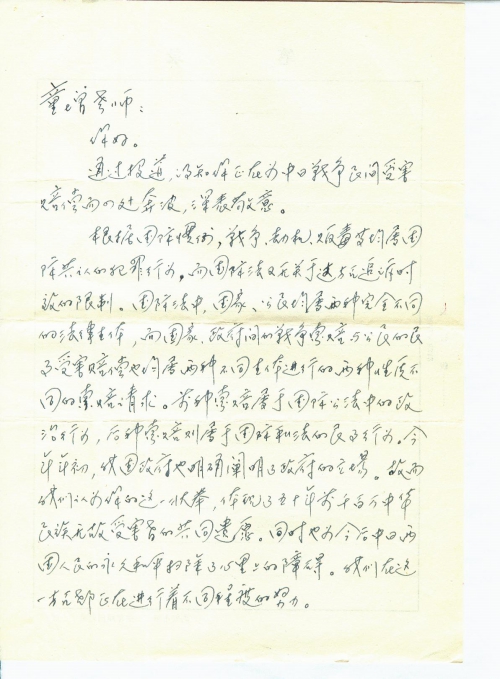 童增老师：
你好。
通过报道，得知你正在为中日战争民间受害
赔偿而四处奔波，深表敬意。
根据国际惯例，战争、劫机、贩毒等均属国
际共认的犯罪行为，而国际法又无关于这方面追诉时
效的限制。国际法中，国家、公民均属两种完全不同
的法律主体，而国家、政府间的战争索赔与公民的民
间受害赔偿也均属两种不同主体进行的两种性质不
同的索赔请求。前种索赔属于国际公法中的政
治行为，后种索赔则属于国际私法的民事行为。今
年年初，我国政府也明确阐明了政府的立场。故而
我们认为你的这一状举，体现了五十年前千百万中华
民族无故受害者的共同遗愿。同时也为今后中日两
国人民的永久和平扫除了心里上的障碍。我们在这
一方面即正在进行着不同程度的努力。